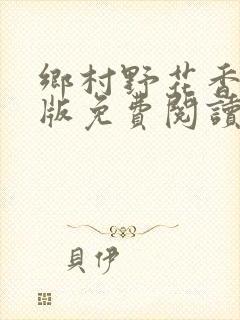 鄉村野花香
版免費閱讀
貝伊